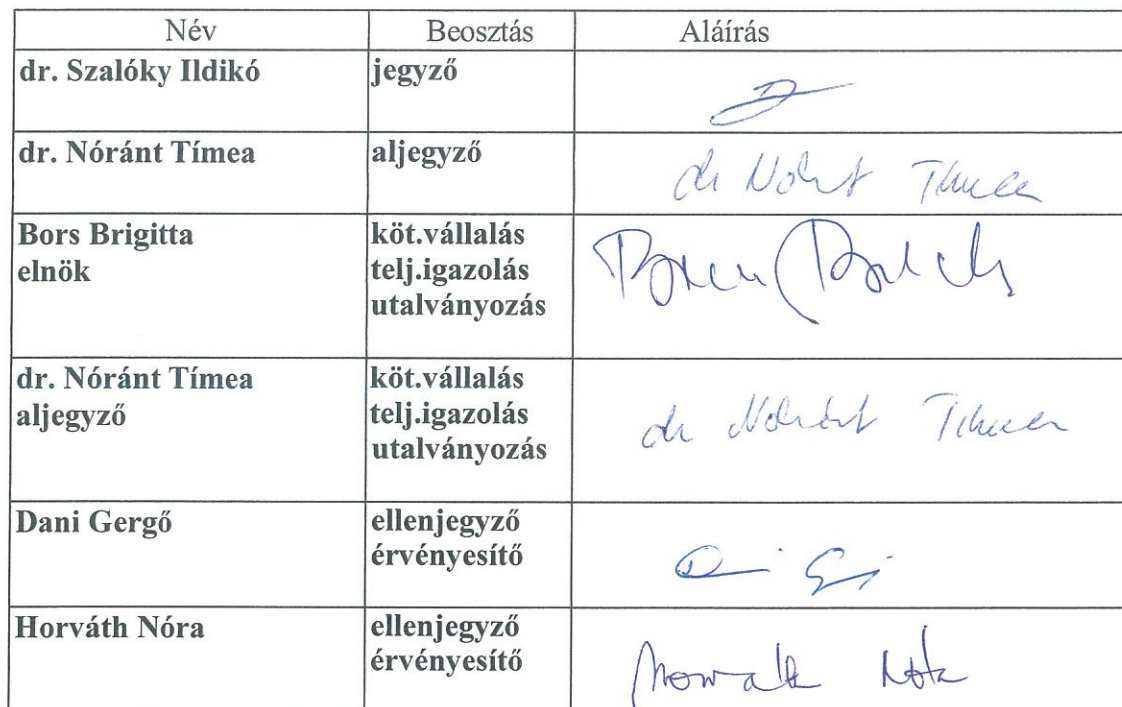 Név Beosztás Aláírás
dr. Szalóky Ildikó jegyző
dr. Nóránt Tímea aljegyző
dr Nóránt Tímea
Bors Brigitta köt.vállalás
elnök telj.igazolás
utalványozás
dr. Nóránt Tímea köt.vállalás
aljegyző telj.igazolás
utalványozás
dr Nóránt Tímea
Dani Gergő ellenjegyző
érvényesítő
Horváth Nóra ellenjegyző
érvényesítő